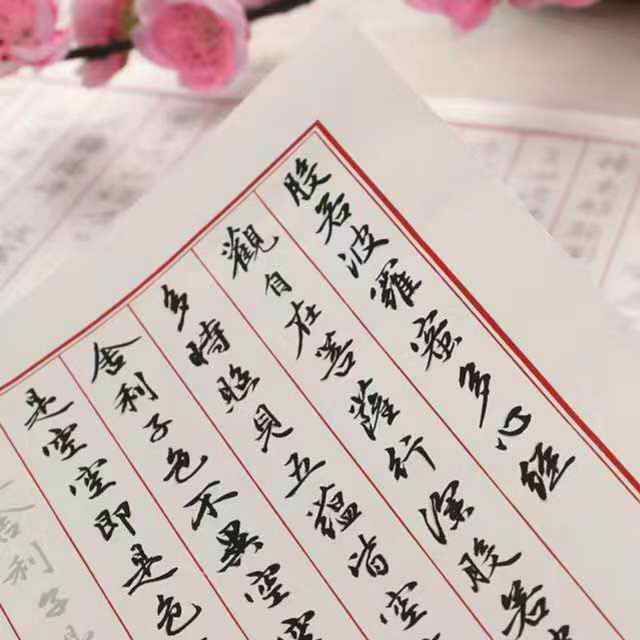 般若波羅蜜多心經
觀自在菩薩行深般若
多時照見五蘊皆空
舍利子色不異空空
是空空即是色
舍利子是